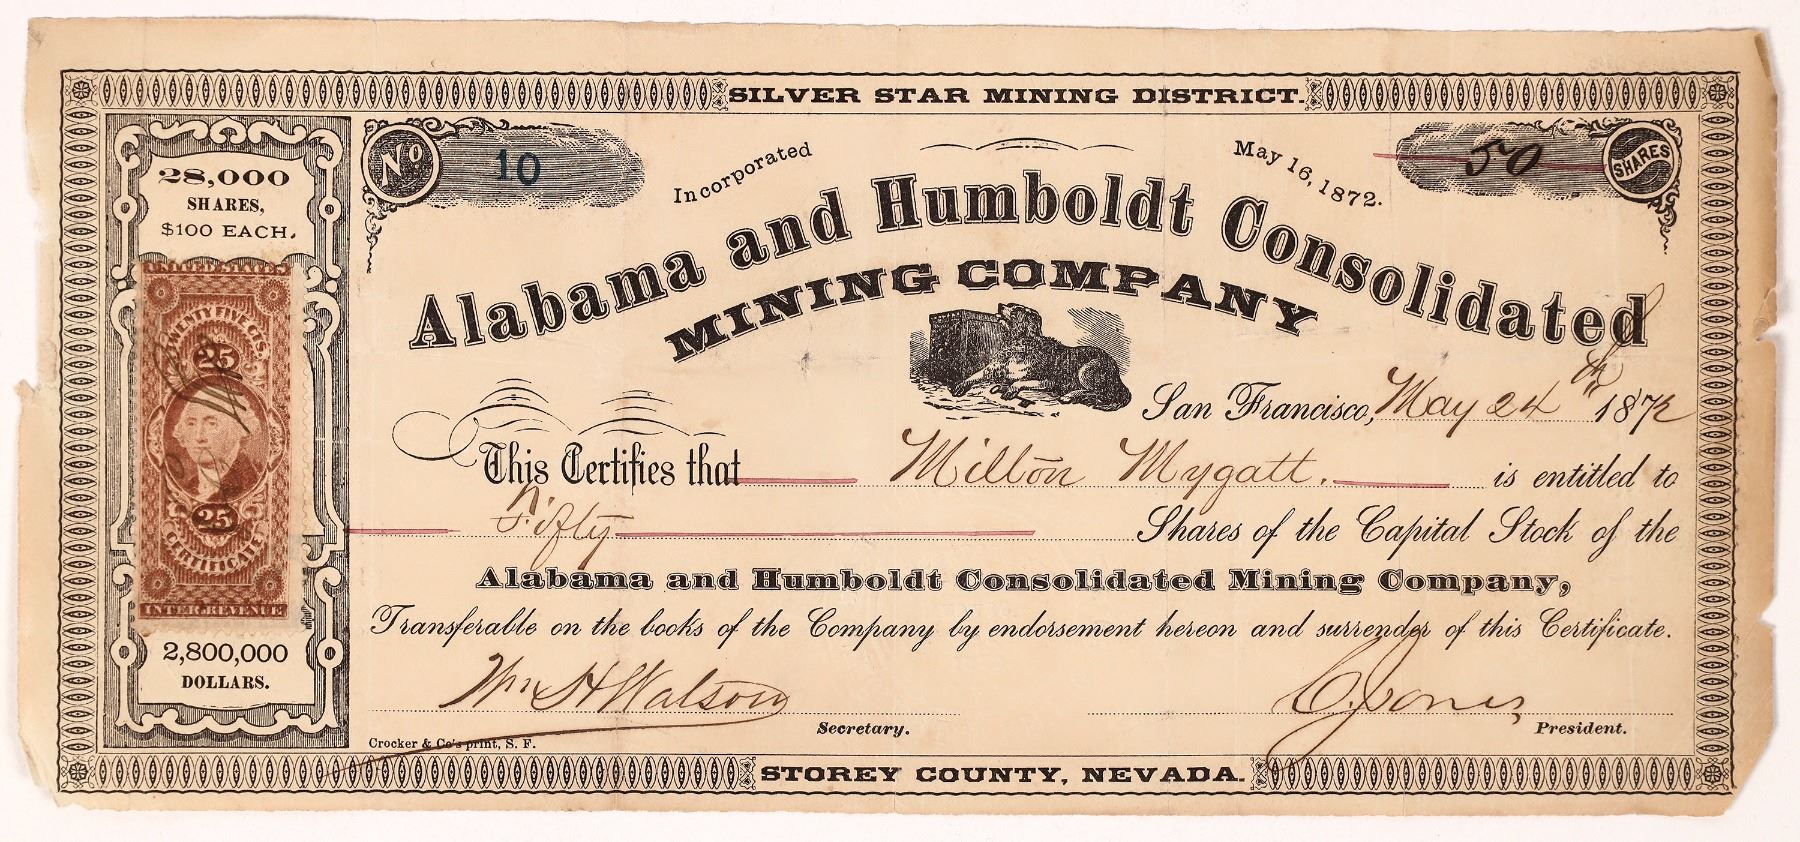 SILVER STAR MINING DISTRICT.
No 10
Incorporated May 16, 1872.
50 SHARES
28,000
SHARES,
$100 EACH.
Alabama and Humboldt Consolidated
MINING COMPANY
UNITED STATES
TWENTY FIVE CTS.
25
25
CERTIFICATE
INTER. REVENUE
2,800,000
DOLLARS.
San Francisco, May 24th 1872
This Certifies that Milton Mygatt. is entitled to
Fifty Shares of the Capital Stock of the
Alabama and Humboldt Consolidated Mining Company,
Transferable on the books of the Company by endorsement hereon and surrender of this Certificate.
Wm H Watson
Secretary.
C. Jones
President.
Crocker & Co's print, S. F.
STOREY COUNTY, NEVADA.